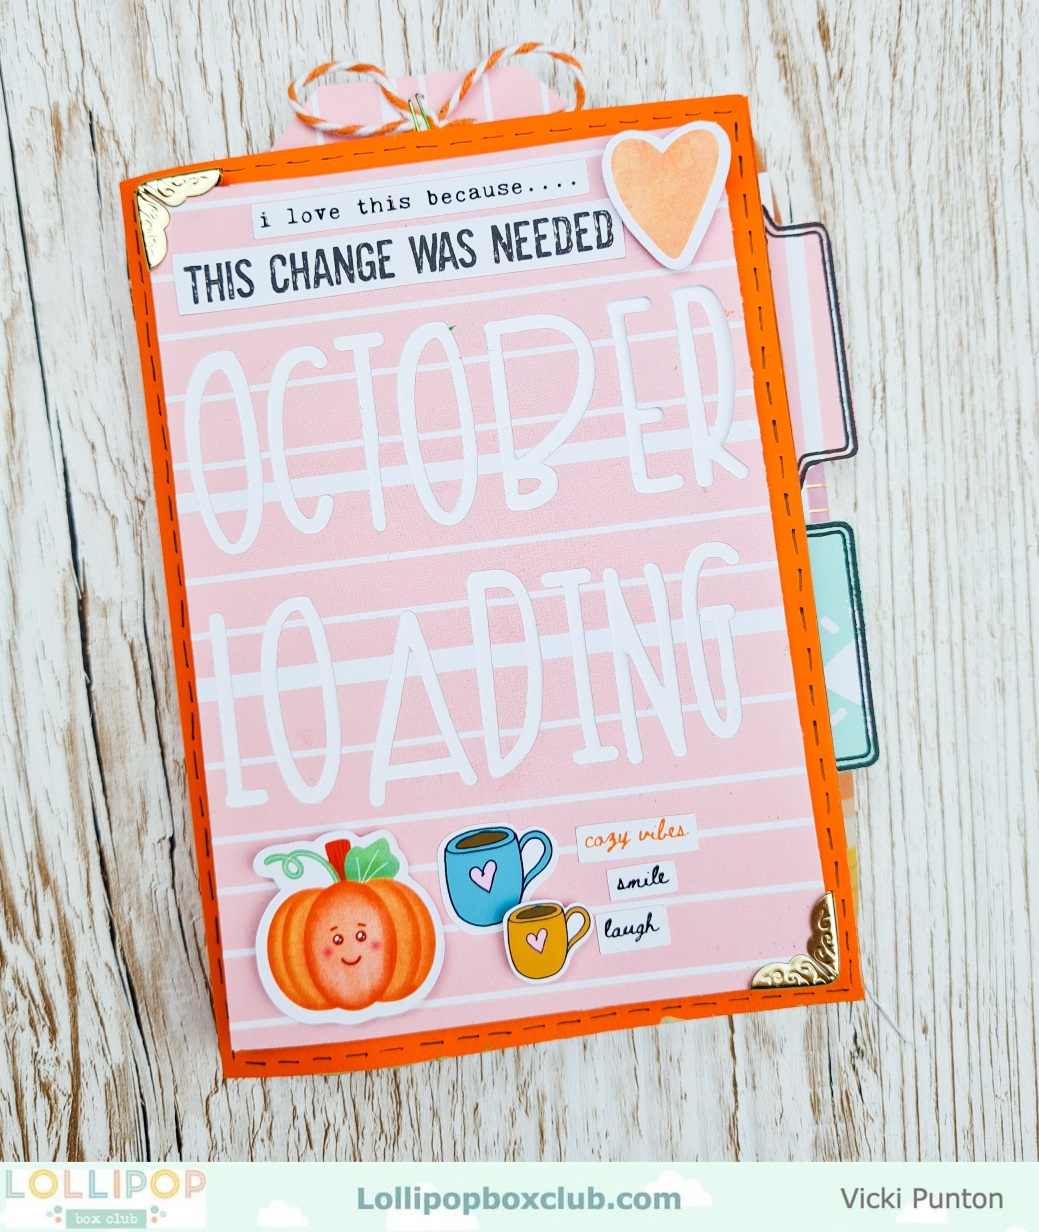 i love this because....
THIS CHANGE WAS NEEDED
OCTOBER
LOADING
cozy vibes
smile
laugh
LOLLIPOP
box club
Lollipopboxclub.com
Vicki Punton